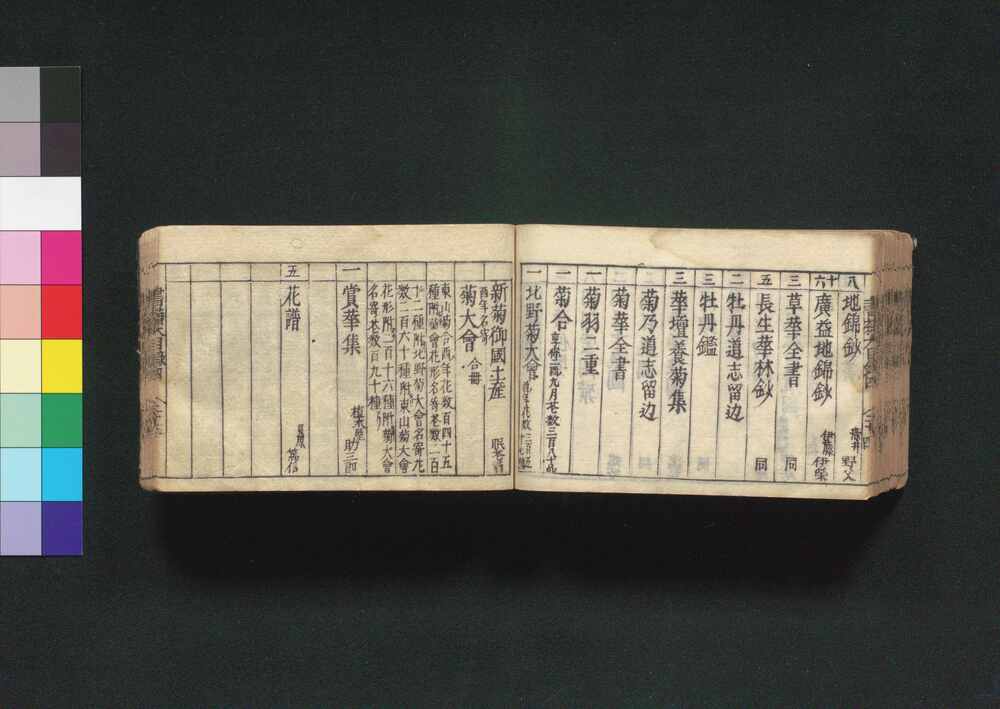 八 地錦鈔
十六 廣益地錦鈔 伊藤伊
三 草華全書 同
五 長生華林鈔 同
二 牡丹道志留辺
三 牡丹鑑
三 華壇養菊集
菊乃道志留辺
菊華全書
一 菊羽二重
一 菊合 九月花数三百八十
一 北野菊大會 花数三百五
新菊御國土産
酉年名寄 菊大會 合冊
東山菊合酉年花数百四十五
種附菊會花形名寄花数一百
十二種附北野菊大會名寄花
数二百六十種附東山菊大會
花形附二百十六種附菊大會
名寄花数百九十種
一 賞華集 助三郎
五 花譜